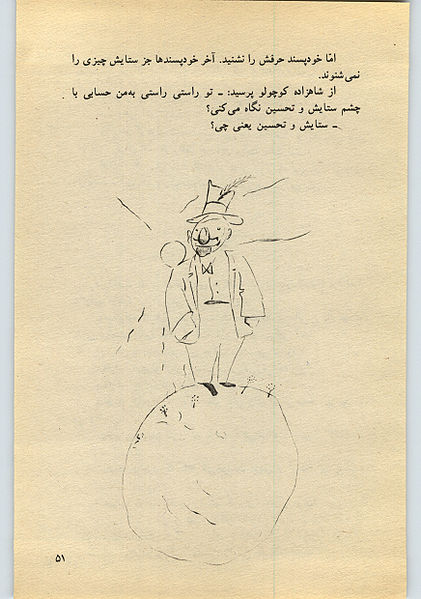 امّا خودپسند حرفش را نشنید. آخر خودپسندها جز ستایش چیزی را
نمی‌شنوند.
از شاهزاده کوچولو پرسید: ـ تو راستی راستی به‌من حسابی با
چشم ستایش و تحسین نگاه می‌کنی؟
ـ ستایش و تحسین یعنی چی؟
۵۱